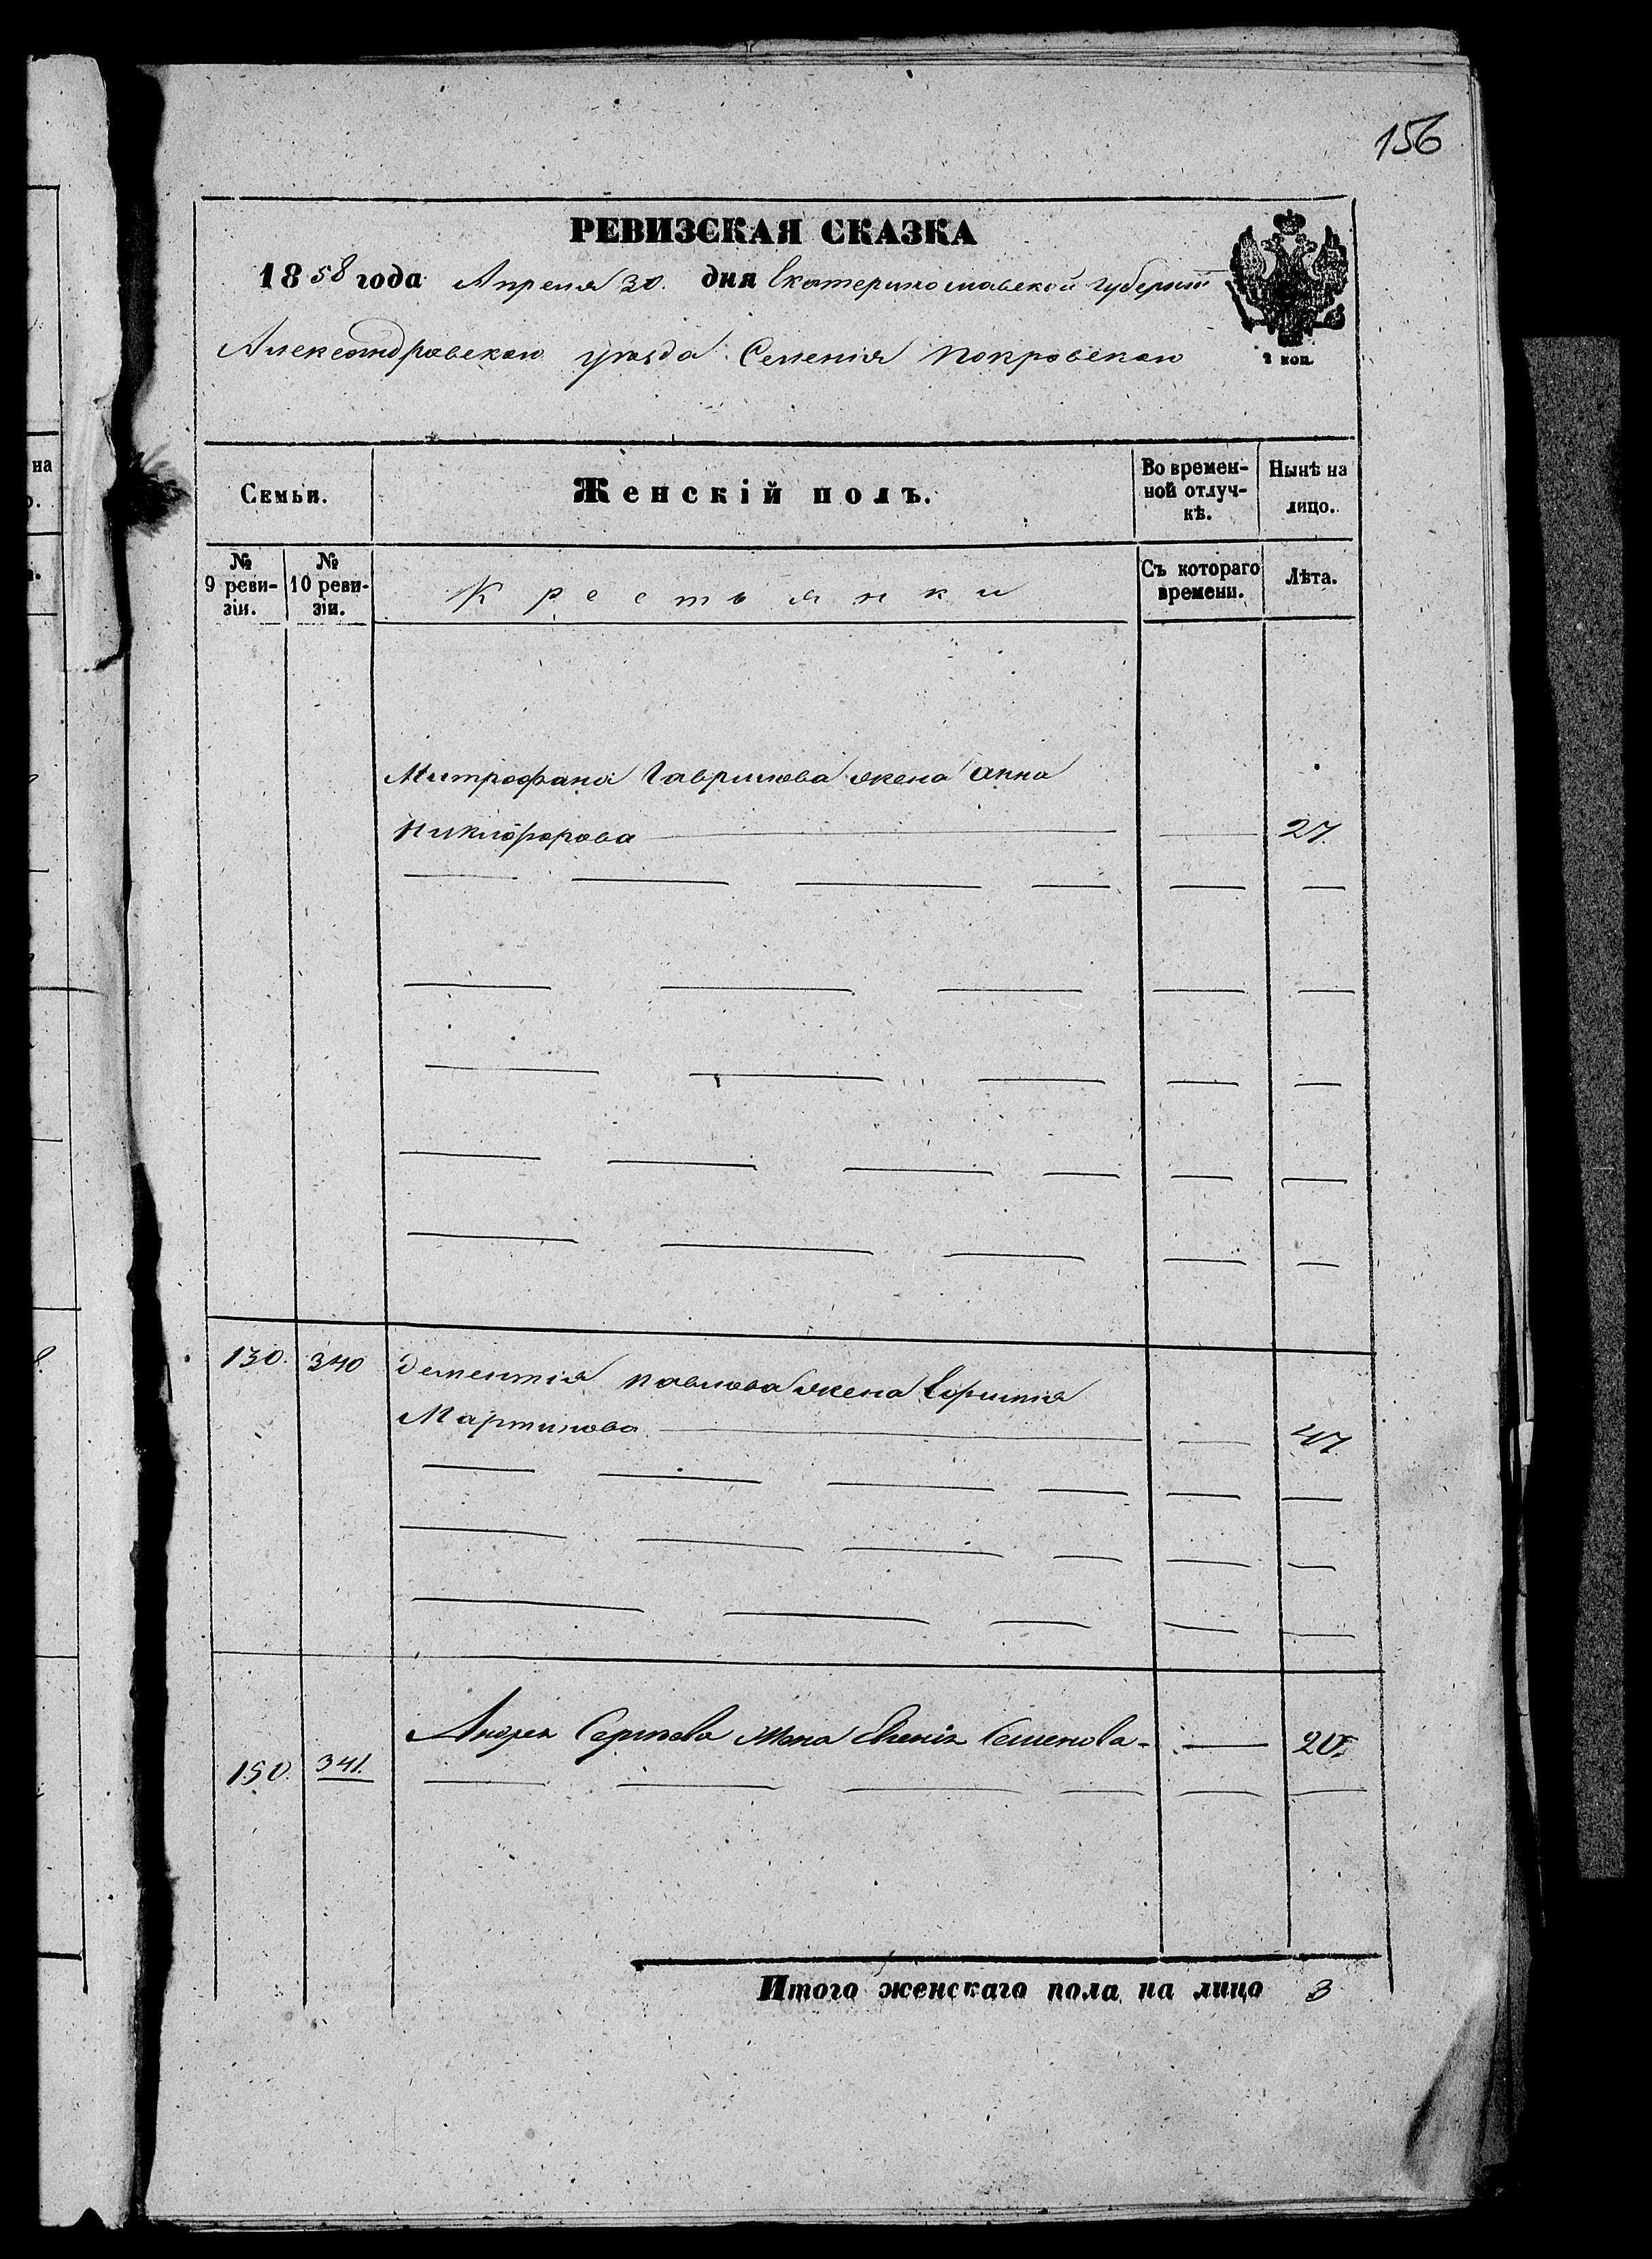 156
РЕВИЗСКАЯ СКАЗКА
1858 года Апреля 30. дня Екатеринославской губернiи
Александровскаго уѣзда Селенiя Покровскаго
2 коп.
Семьи.
Женскiй полъ.
Во времен-
ной отлуч-
кѣ.
Нынѣ на
лицо.
№
9 реви-
зiи.
№
10 реви-
зiи.
Крестьянки
Съ котораго
времени.
Лѣта.
Митрофана Гаврилова жена Анна
Никифорова 27.
130. 340 Дементiя Павлова жена
Мартинова 47.
150. 341. Андрея Сергѣева жена Евгенiя Семенова 20
Итого женскаго пола на лицо 3
на